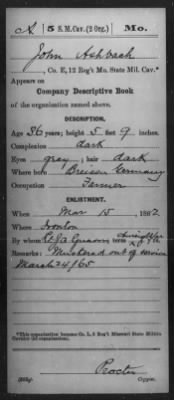 A | 5 S.M. Cav. (2 Org.) | Mo.
John Ashbach
, Co. E, 12 Reg't Mo. State Mil. Cav.*
Appears on
Company Descriptive Book
of the organization named above.
DESCRIPTION.
Age 36 years; height 5 feet 9 inches.
Complexion dark
Eyes gray; hair dark
Where born Germany
Occupation Farmer
ENLISTMENT.
When Mar 15, 1862
Where Ironton
By whom term
Remarks: Mustered out of service
March 24/65
*This organization became Co. L, 5 Reg't Missouri State Militia
Cavalry (2d organization).
Proctor
Copyist.